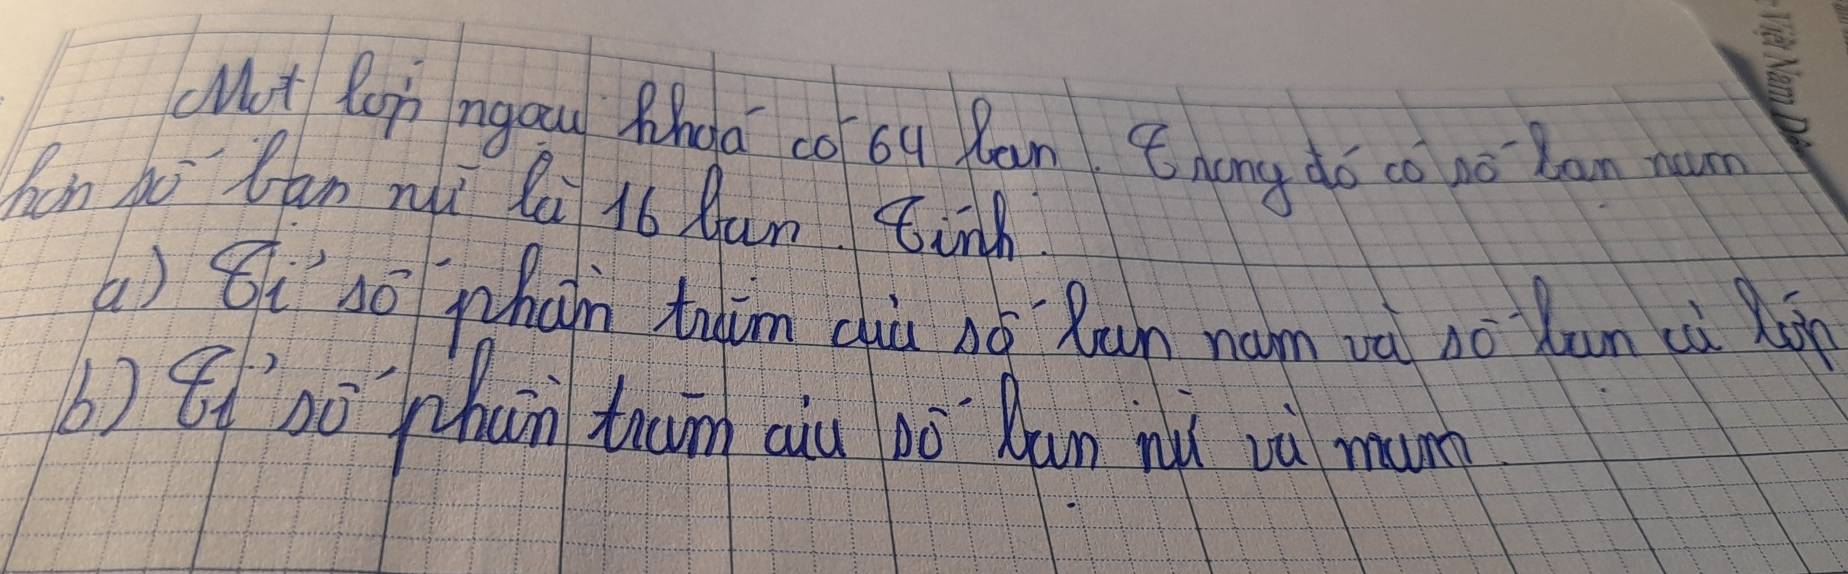 Việt Nam Dâ
Một lớp ngoại khoá có 64 bạn. Trong đó có số bạn nam
hơn số bạn nữ là 16 bạn. Tính.
a) Tỉ số phần trăm của số bạn nam và số bạn cả lớp
b) Tỉ số phần trăm của số bạn nữ và nam